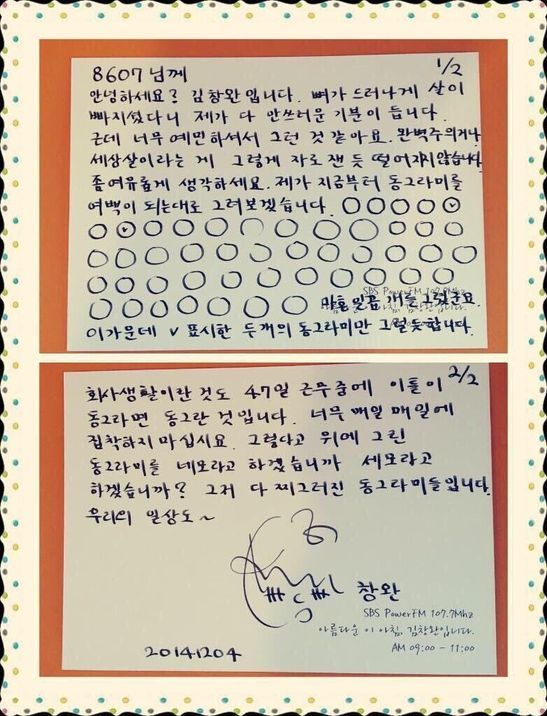 8607님께 1/2
안녕하세요? 김창완입니다. 뼈가 드러나게 살이
빠지셨다니 제가 다 안쓰러운 기분이 듭니다.
근데 너무 예민하셔서 그런 것 같아요. 완벽주의거나
세상살이라는 게 그렇게 자로 잰 듯 떨어지지않습니다
좀여유롭게 생각하세요. 제가 지금부터 동그라미를
여백이 되는대로 그려보겠습니다.
마흔일곱 개를 그렸군요.
SBS PowerFM 107.7Mhz
이가운데 v 표시한 두개의 동그라미만 그럴듯합니다.
회사생활이란것도 47일 근무중에 이틀이 2/2
동그라면 동그란 것입니다. 너무 매일 매일에
집착하지 마십시요. 그렇다고 위에 그린
동그라미를 네모라고 하겠습니까 세모라고
하겠습니까? 그저 다 찌그러진 동그라미들입니다.
우리의 일상도~
창완
SBS PowerFM 107.7Mhz
아름다운 이 아침, 김창완입니다.
20141204
AM 09:00 - 11:00